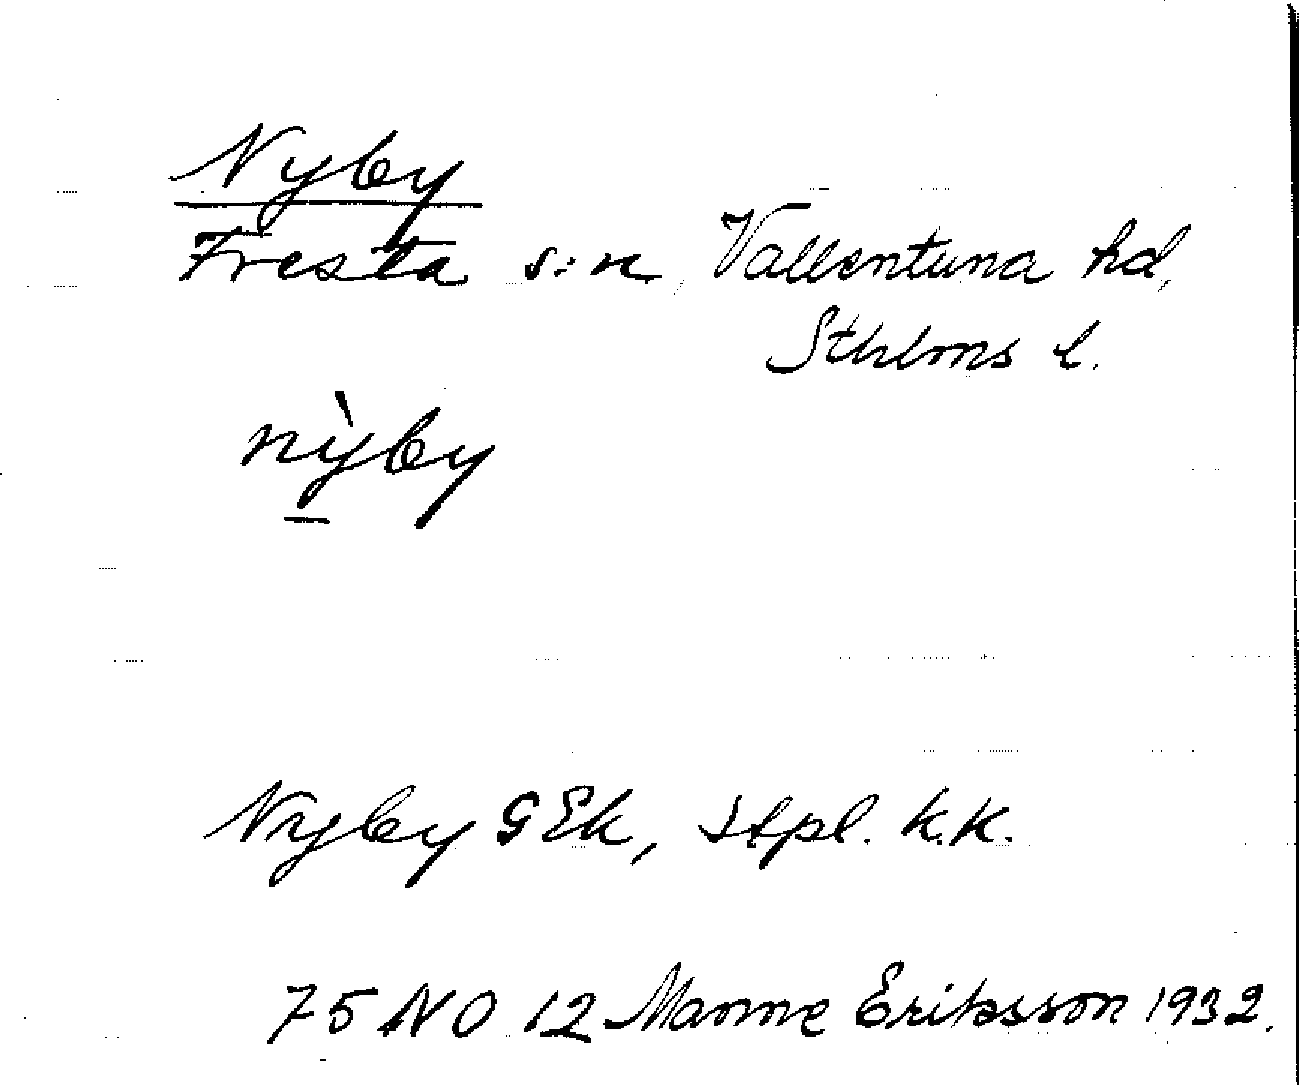 Nyby
Fresta s:n, Vallentuna hd,
Sthlms l.
nỳby
Nyby GEk, stpl. k.k.
75 NO 12 Manne Eriksson 1932.